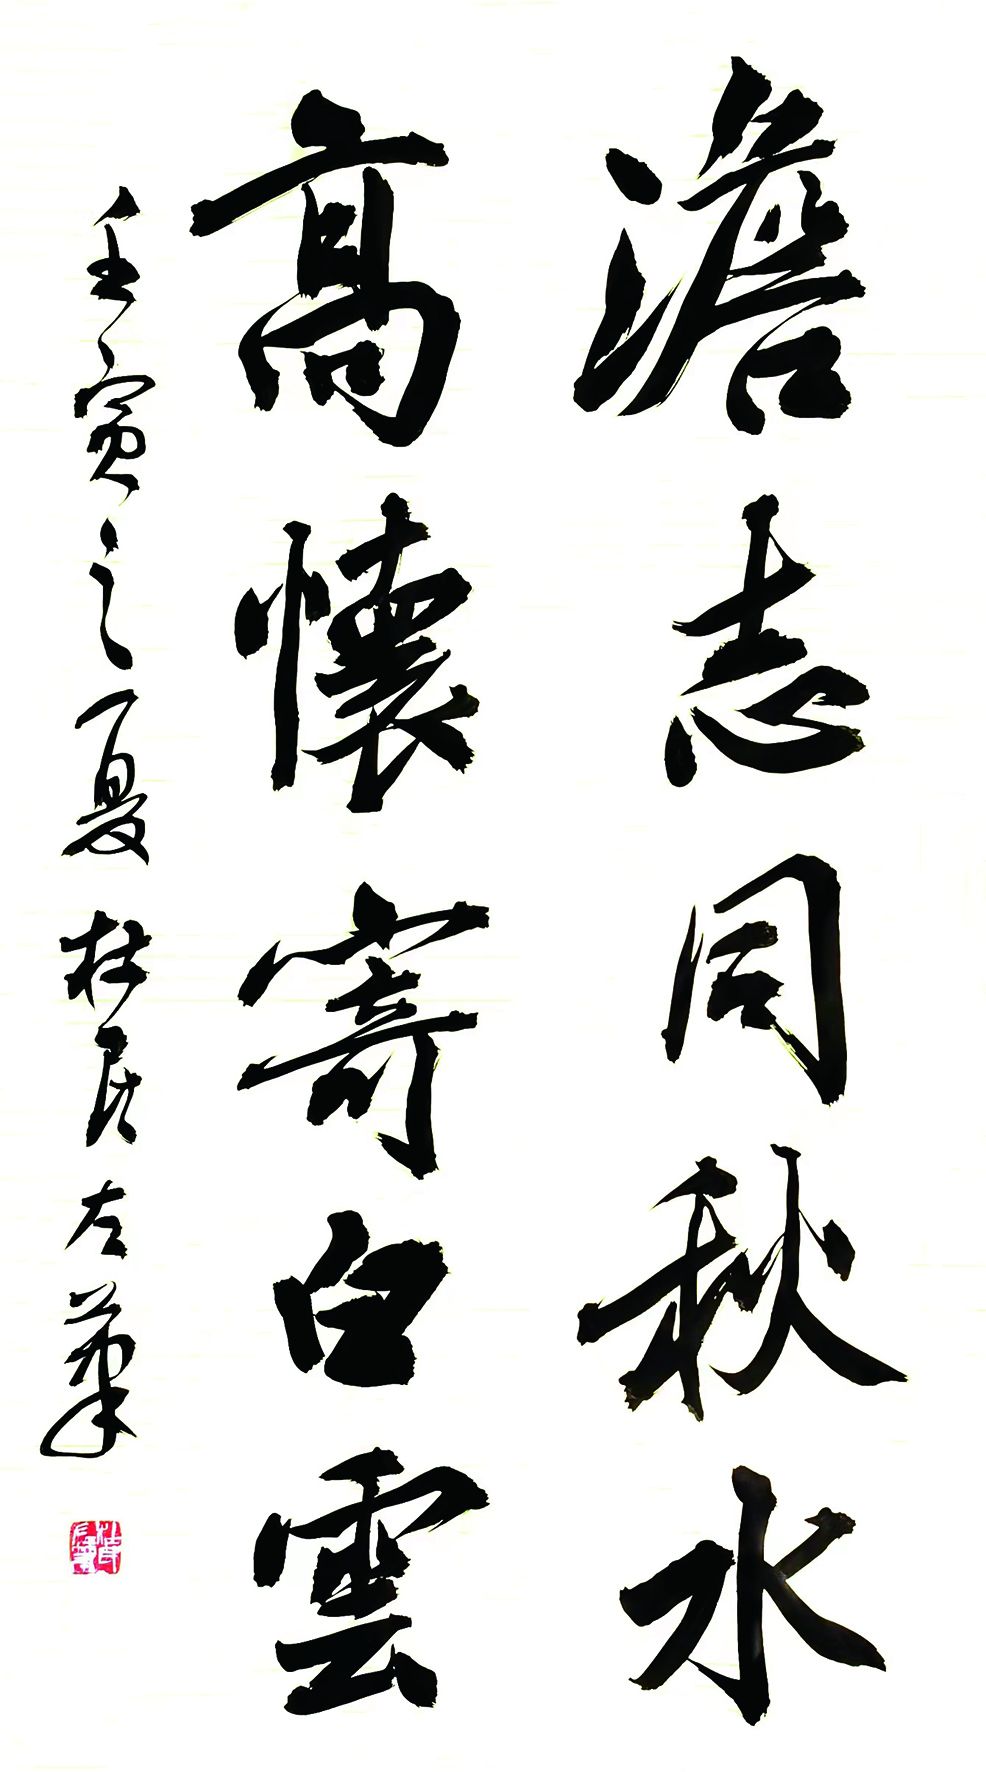 澹志同秋水
高懷寄白雲
壬寅之夏杜民左筆